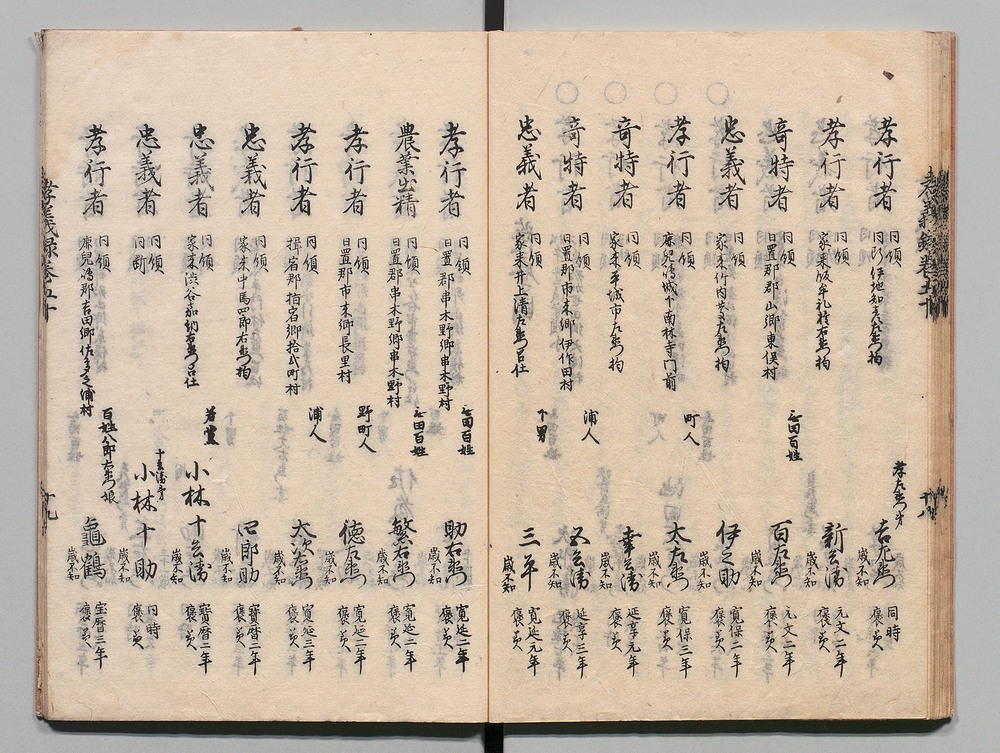 孝行者
同領
同所伊地知
拘
孝左衛門弟
吉左衛門
歳不知
同時
褒美
孝行者
同領
家来飯牟礼
右衛門拘
新兵衛
歳不知
元文二年
褒美
奇特者
同領
日置郡郡山郷東俣村
百姓
百左衛門
歳不知
元文二年
褒美
忠義者
同領
家来竹内
右衛門拘
伊之助
歳不知
寛保二年
褒美
孝行者
同領
鹿児島城下南林寺門前
町人
太左衛門
歳不知
寛保三年
褒美
奇特者
同領
家来平城市左衛門拘
幸兵衛
歳不知
延享元年
褒美
奇特者
同領
日置郡市来郷伊作田村
浦人
五兵衛
歳不知
延享三年
褒美
忠義者
同領
家来井上清左衛門召仕
下男
三平
歳不知
寛延元年
褒美
孝行者
同領
日置郡串木野郷串木野村
百姓
助右衛門
歳不知
寛延二年
褒美
農業出精
同領
日置郡串木野郷串木野村
百姓
繁右衛門
歳不知
寛延二年
褒美
孝行者
同領
日置郡市来郷長里村
野町人
徳左衛門
歳不知
寛延二年
褒美
孝行者
同領
揖宿郡指宿郷拾弐町村
浦人
次右衛門
歳不知
寛延三年
褒美
忠義者
同領
家来中馬四郎右衛門拘
四郎助
歳不知
寶暦二年
褒美
忠義者
同領
家来渋谷嘉納右衛門召仕
若黨
小林十兵衛
歳不知
寶暦二年
褒美
忠義者
同領
同断
十兵衛弟
小林十助
歳不知
同時
褒美
孝行者
同領
鹿児嶋郡吉田郷佐多之浦村
百姓八郎右衛門娘
亀鶴
歳不知
宝暦三年
褒美
孝義録巻五十
十九